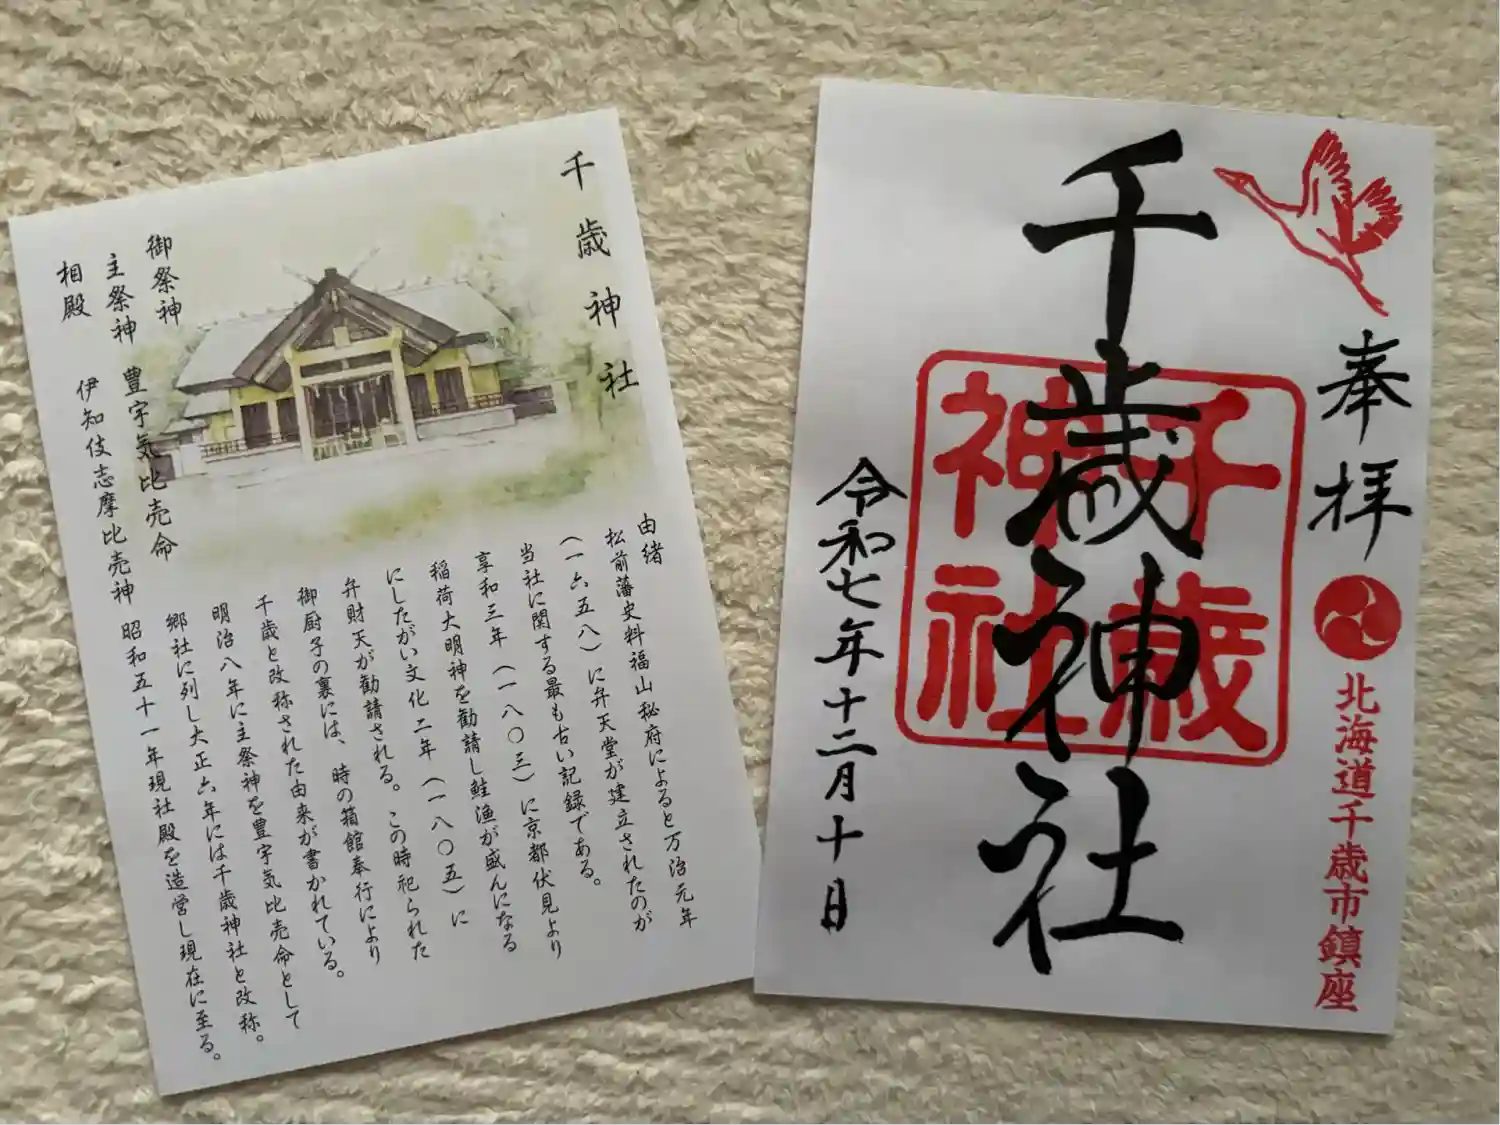 千歳神社
御祭神
主祭神 豊宇気比売命
相殿 伊知伎志摩比売神
由緒
松前藩史料福山秘府によると万治元年
(一六五八)に弁天堂が建立されたのが
当社に関する最も古い記録である。
享和三年(一八〇三)に京都伏見より
稲荷大明神を勧請し鮭漁が盛んになる
にしたがい文化二年(一八〇五)に
弁財天が勧請される。この時祀られた
御厨子の裏には、時の箱館奉行により
千歳と改称された由来が書かれている。
明治八年に主祭神を豊宇気比売命として
郷社に列し大正六年には千歳神社と改称。
昭和五十一年現社殿を造営し現在に至る。
奉拝
北海道千歳市鎮座
千歳神社
千歳神社
令和七年十二月十日